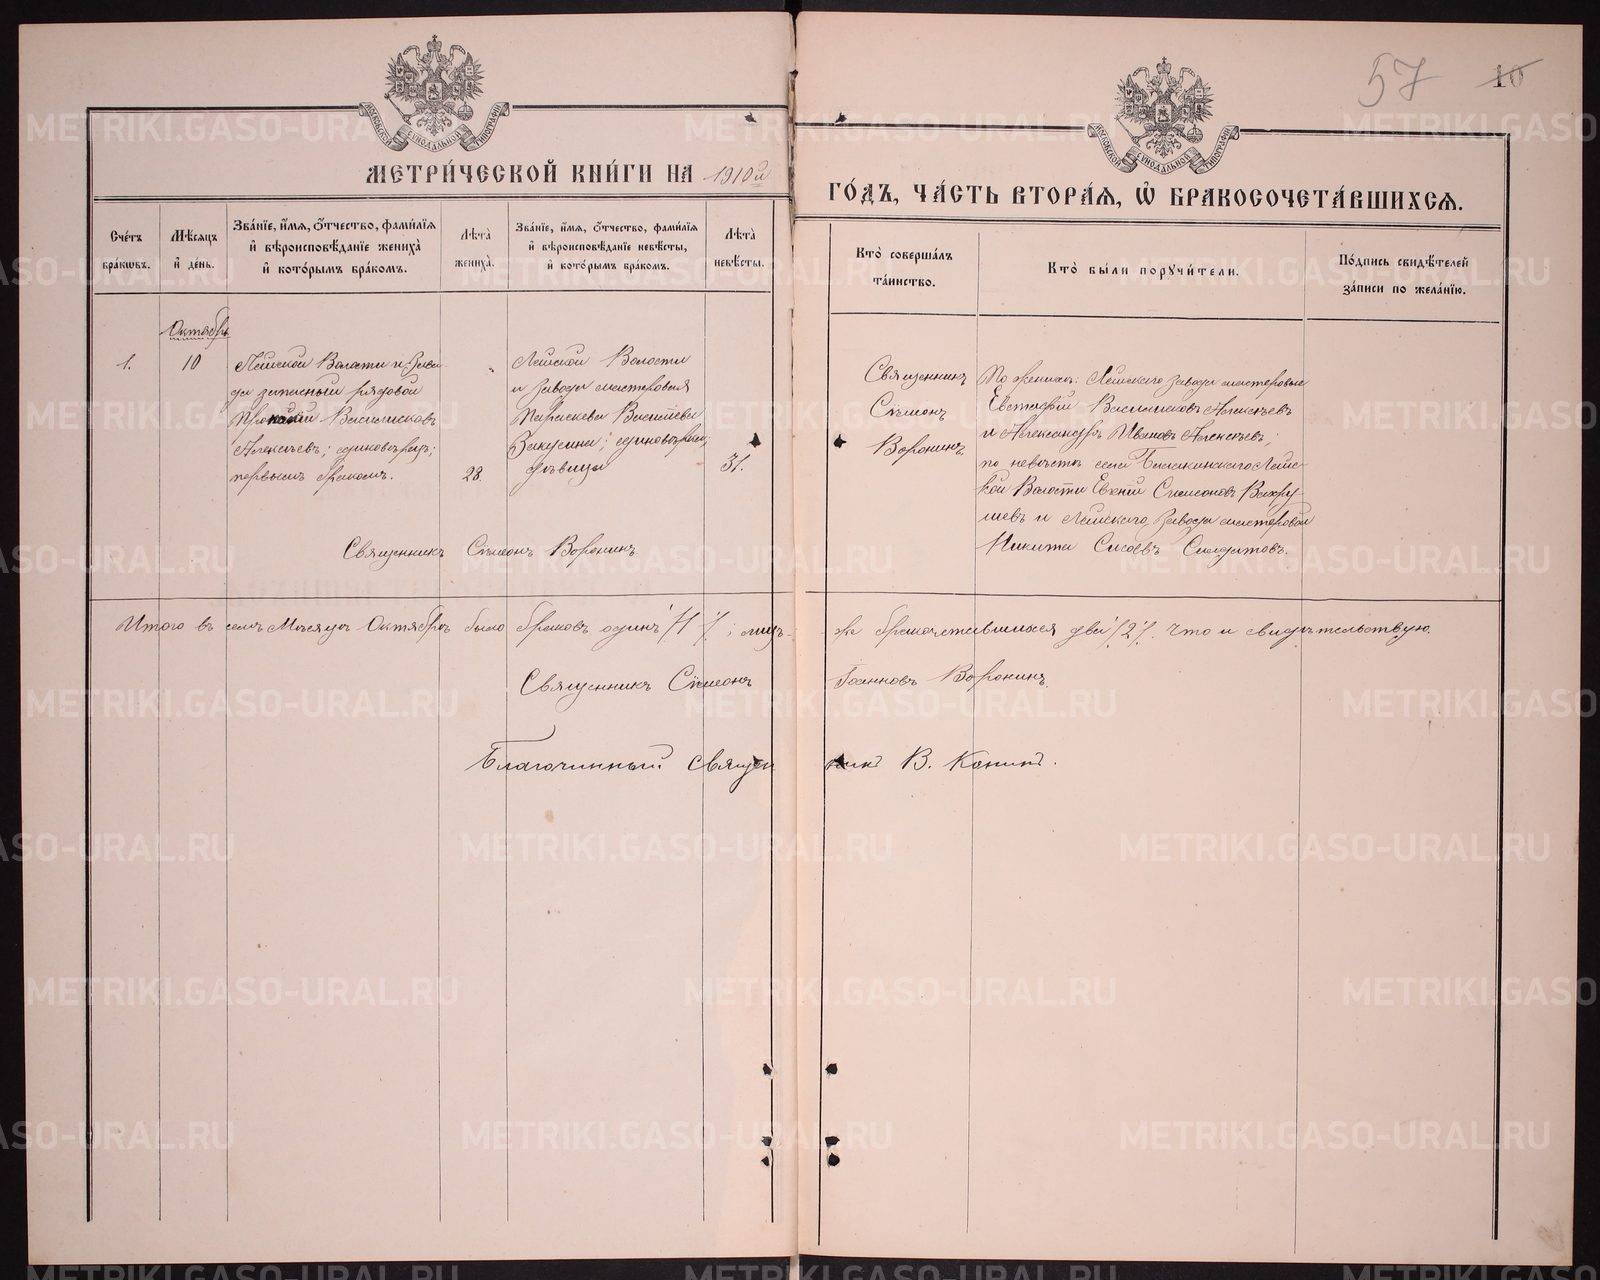 57 10
МОСКОВСКОЙ СѴНОДАЛЬНОЙ ТИПОГРАФІИ
МОСКОВСКОЙ СѴНОДАЛЬНОЙ ТИПОГРАФІИ
МЕТРИ́ЧЕСКОЙ КНИ́ГИ НА 1910й
ГО́ДЪ, ЧА́СТЬ ВТОРА́Я, Ѽ БРАКОСОЧЕТА́ВШИХСЯ.
Сче́тъ бра́кѡвъ.
Мѣ́сяцъ и҆ де́нь.
Зва́нїе, и҆́мя, ѻ҆́тчество, фами́лїя и҆ вѣроисповѣ́данїе жениха̀ и҆ кото́рымъ бра́комъ.
Лѣ́та жениха̀.
Зва́нїе, и҆́мя, ѻ҆́тчество, фами́лїя и҆ вѣроисповѣ́данїе невѣ́сты, и҆ кото́рымъ бра́комъ.
Лѣ́та невѣ́сты.
Кто̀ соверша́лъ та́инство.
Кто̀ бы́ли поручи́тели.
По́дпись свидѣ́телей за́писи по жела́нїю.
Октябрь
1.
10
Волости и Заво-
да запасный рядовой
Васильсковъ
Алексѣевъ; единовѣрецъ;
первымъ бракомъ.
28.
Волости
и Завода мастеровая
Параскева Василіева
единовѣрка;
дѣвица
31.
Священникъ
Сѵмеонъ
Воронинъ.
По женихѣ: завода мастеровые
Евстафій Алексѣевъ
и Александръ Ивановъ Алексѣевъ;
по невѣстѣ села
кой Волости Евгеній Симеоновъ Вахру-
шевъ и Завода мастеровой
Никита Солдатовъ.
Священникъ Сѵмеонъ Воронинъ.
Итого въ семъ мѣсяцѣ Октябрѣ было браковъ одинъ /1/, лицъ-
же бракочетавшихся два /2/. Что и свидѣтельствую.
Священникъ Сѵмеонъ Іоанновъ Воронинъ.
Благочинный священникъ В. Конинъ.
METRIKI.GASO-URAL.RU